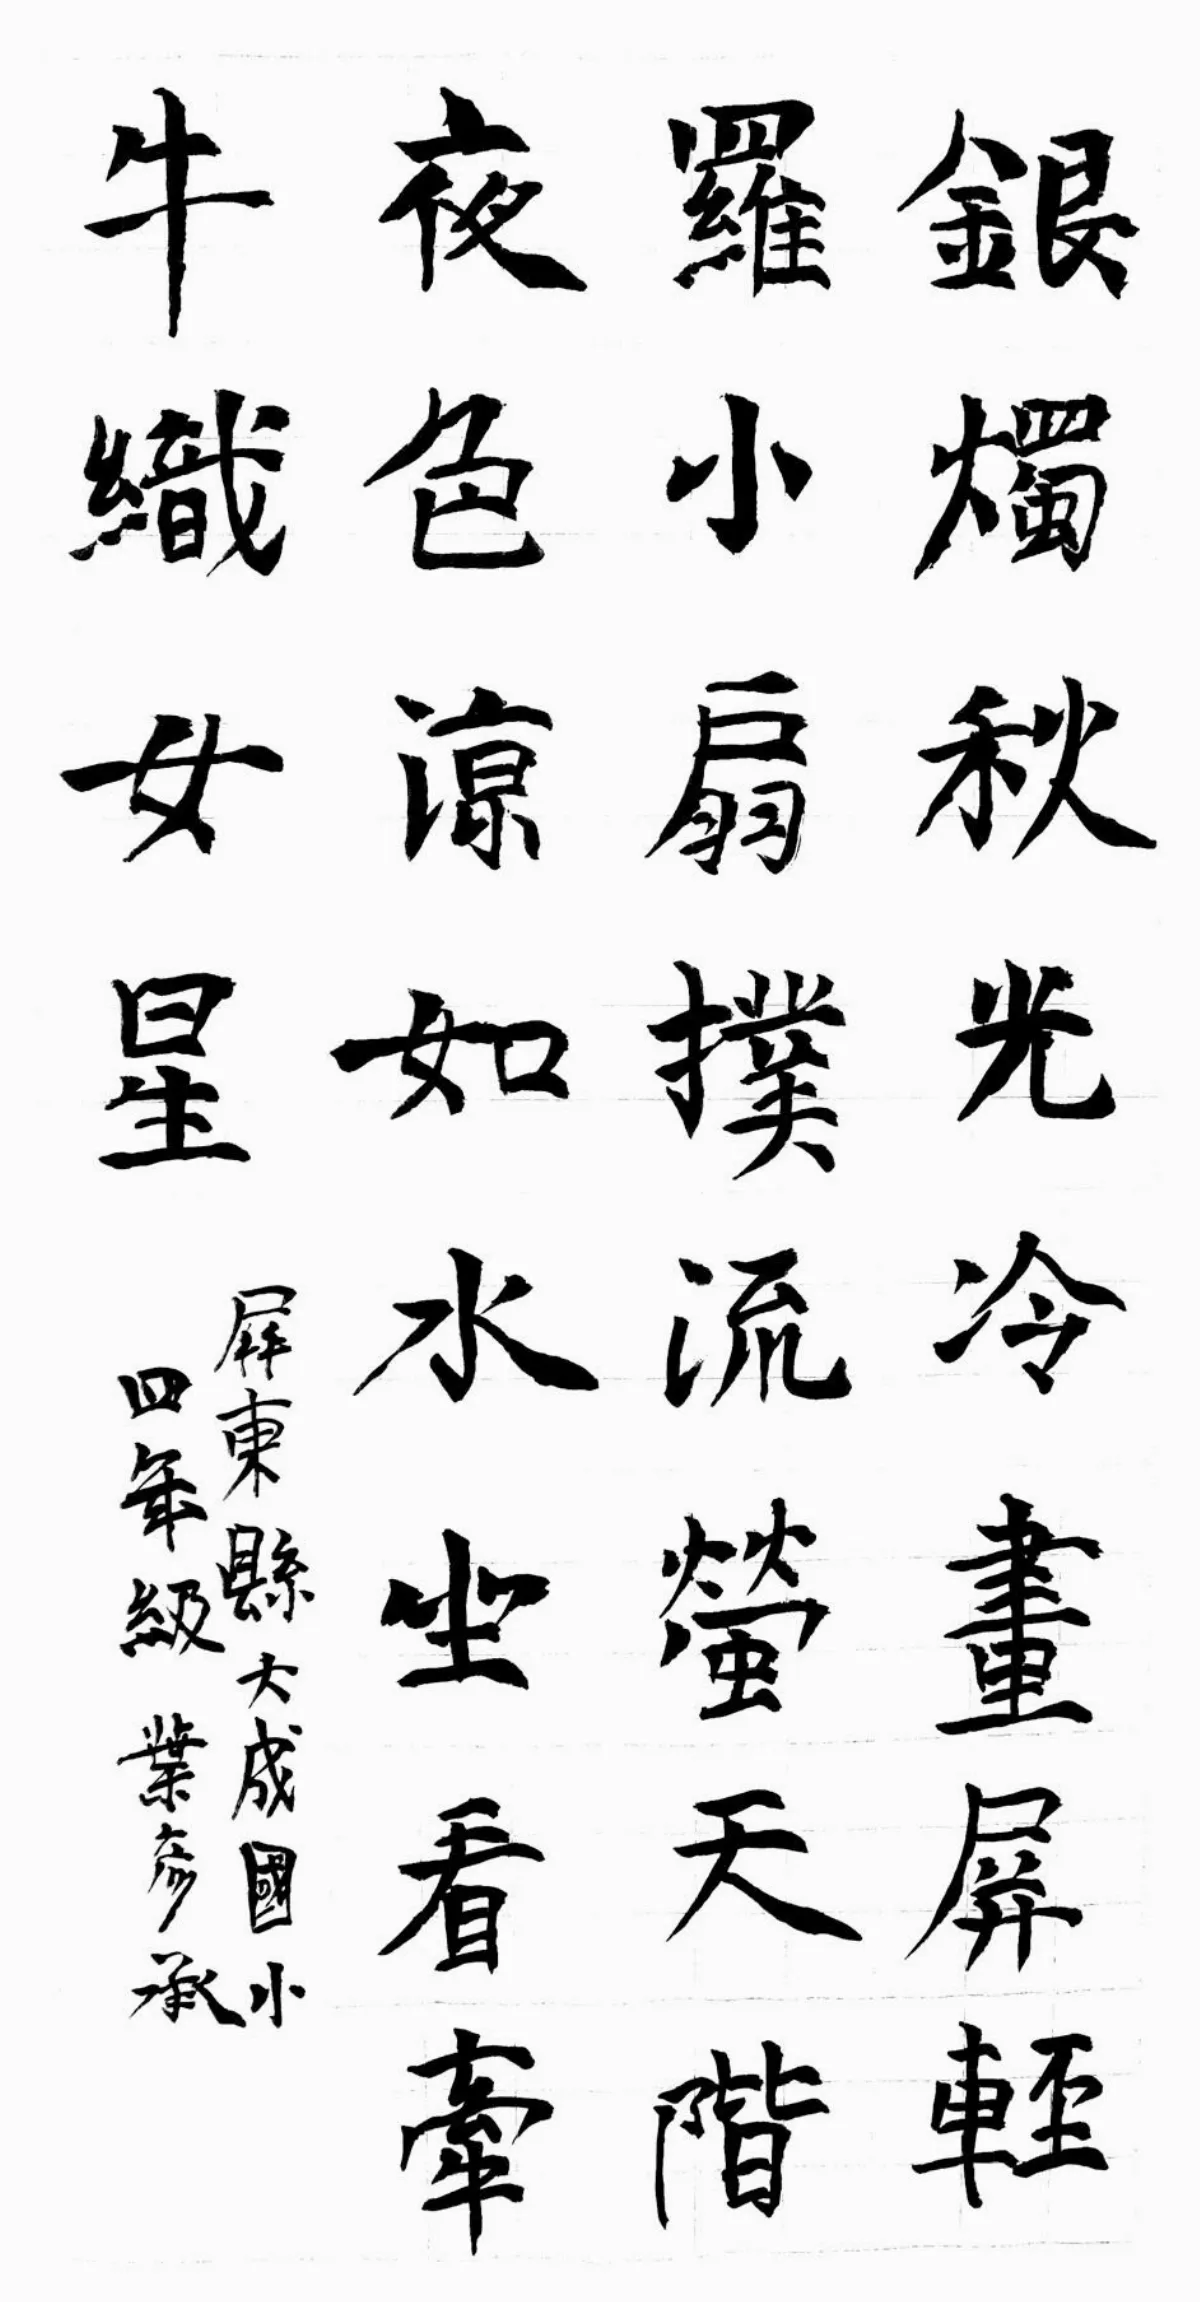 銀燭秋光冷畫屏輕
羅小扇撲流螢天階
夜色涼如水坐看牽
牛織女星
屏東縣大成國小
四年級 葉彥承